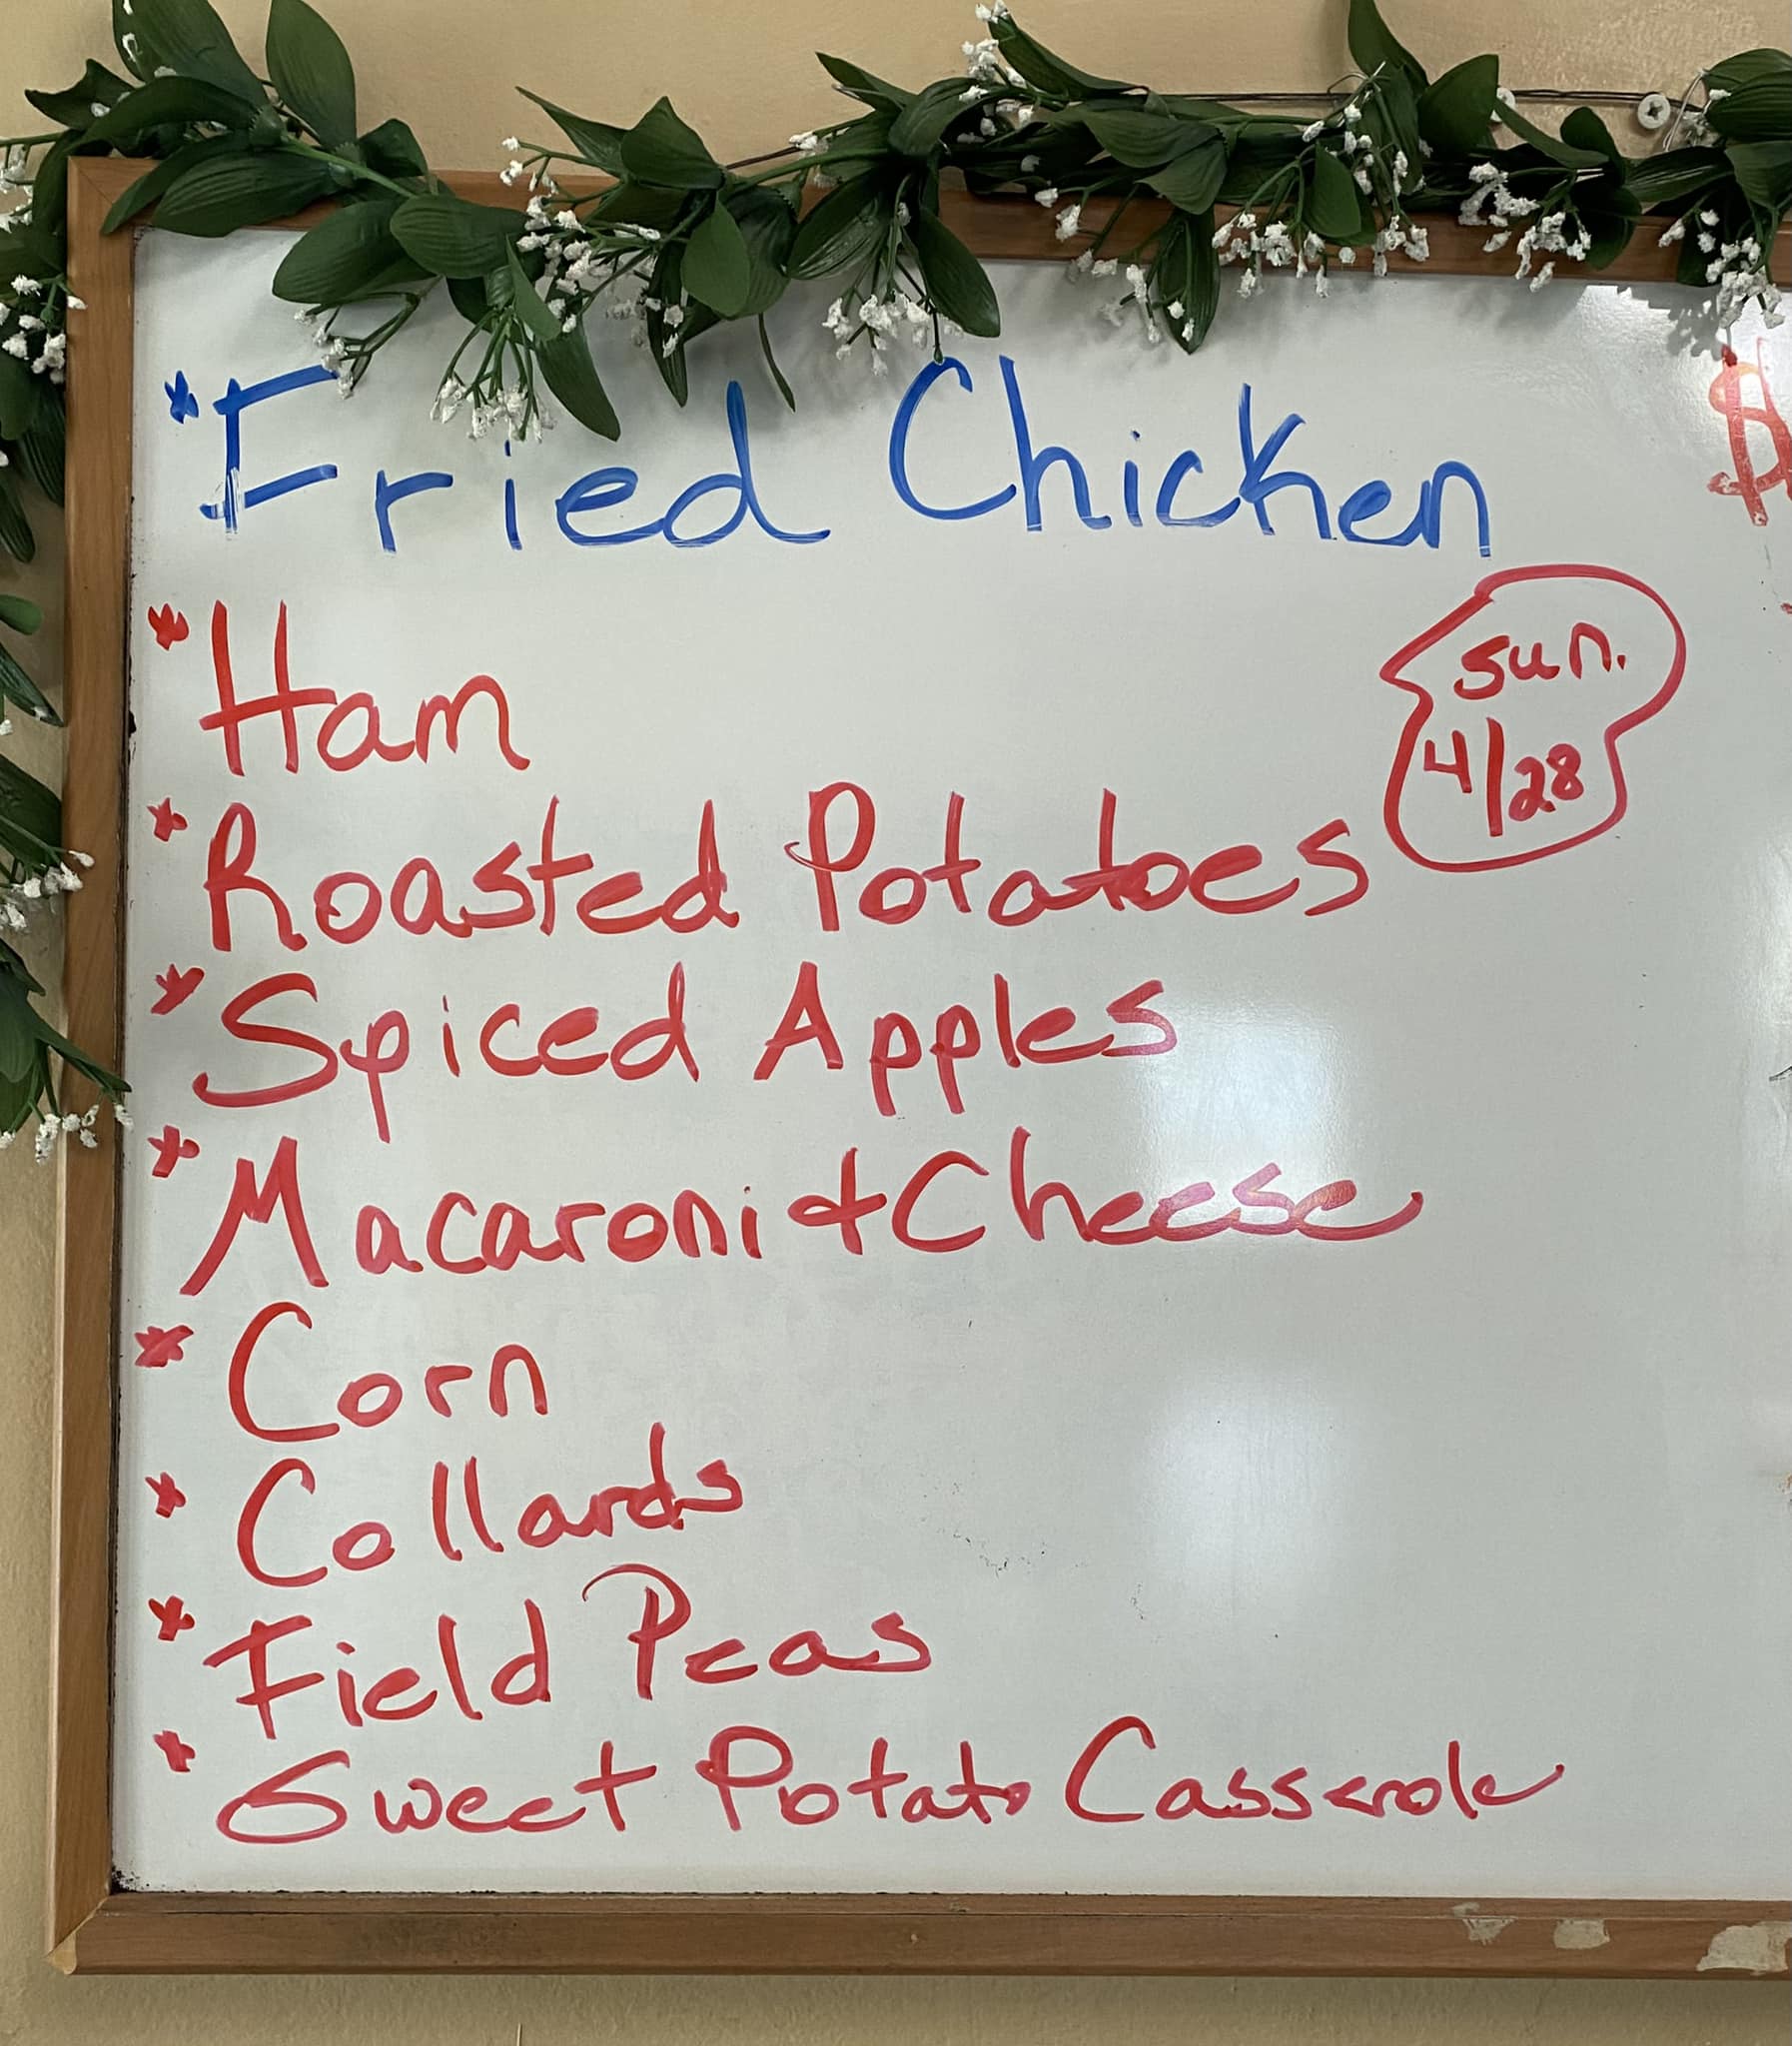 *Fried Chicken
$
*Ham
sun.
4/28
*Roasted Potatoes
*Spiced Apples
*Macaroni & Cheese
*Corn
*Collards
*Field Peas
*Sweet Potato Casserole